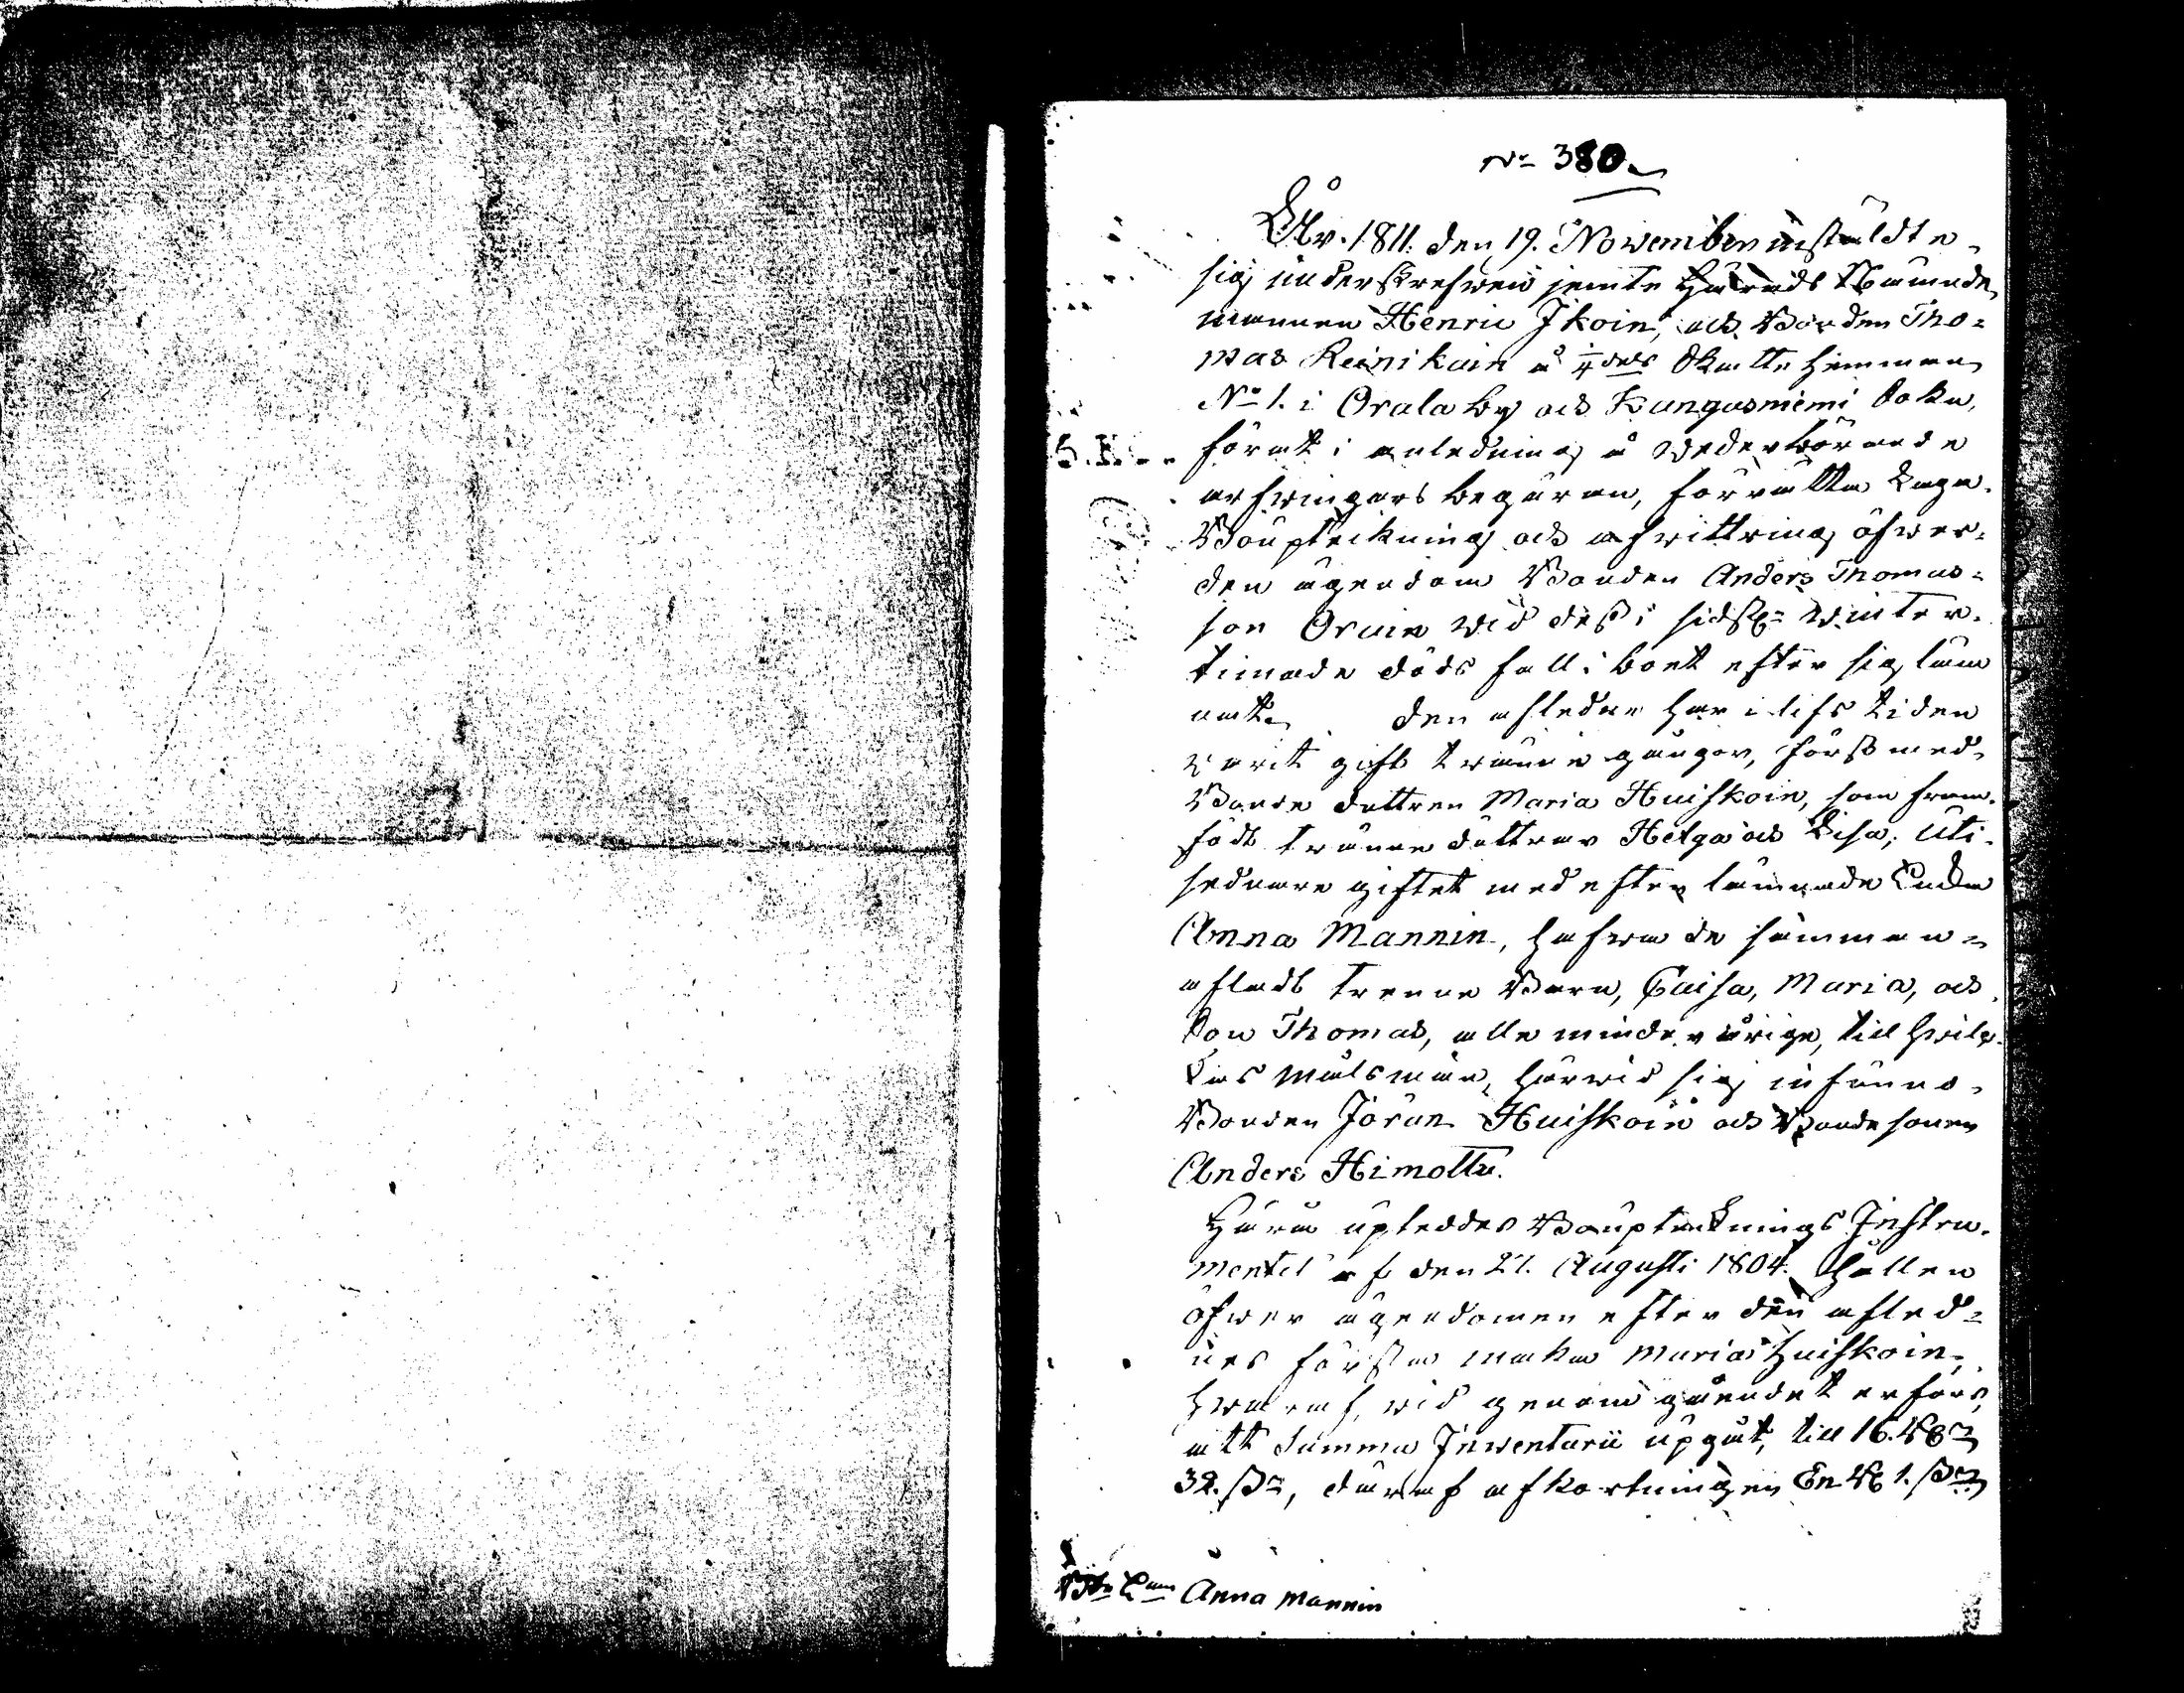 No 380.
År 1811. den 19. November instäldte
sig underskrefwen jemte Härads Nämnde
mannen Henric Ikoin, och Bonden Tho=
mas Reinikain å 1/4 dels Skatte Hemman
No 1. i Orala by och Kangasniemi Sokn,
S. K. förat i anledning å wederbörande
arfwingars begäran, förrätta Laga
Bouptekning och afwittring öfwer
den ägendom Bonden Anders Thomas=
son Orain wid dess i sidstl= winter
timade dödsfall i boet efter sig läm
nat. Den afledne har i lifstiden
varit gift twänne gånger, först med
Bonde dottren Maria Huiskoin, som fram
födt twänne döttrar Helga och Lisa; Uti
sednare giftet med efterlämnade Enkan
Anna Mannin, hafwa de samman=
aflat trenne Barn, Caisa, Maria, och
Son Thomas, alle minderårige, till hwil
kas målsmän, härwid sig infunno
Bonden Jöran Huiskoin och Bondesonen
Anders Himottu.
Häru upteddes Bouptecknings Instru
mentet af den 27. Augusti 1804. hållen
öfwer ägendomen efter den afled=
nes första maka Maria Huiskoin,
hwaraf, wid genomgåendet erfors,
att Summa Inventarii upgåt, till 16. Rd
32. s, däraf afkortningen En Rd 1. s
Enkan Anna Mannin